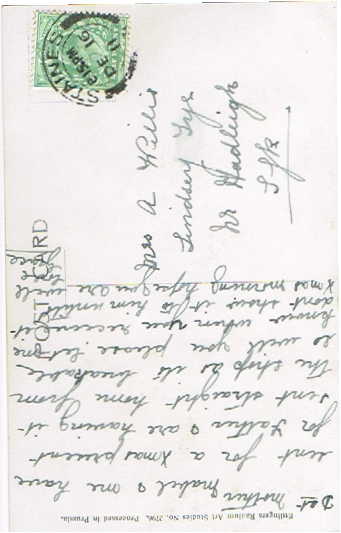 Dear mother mabel & me have
sent for a Xmas present
for Father & are having it
sent straight home from
the shop as its breakable,
so will you please let me
know when you receive it
dont show it to him until
Xmas morning hope you are well
love
POST CARD
Mrs A Willis
Lindsey Tye
Nr Hadleigh
Sffk
STAINES
8.15PM
DE 16
11
Ettlingers Radium Art Studies No. 3796. Processed in Prussia.